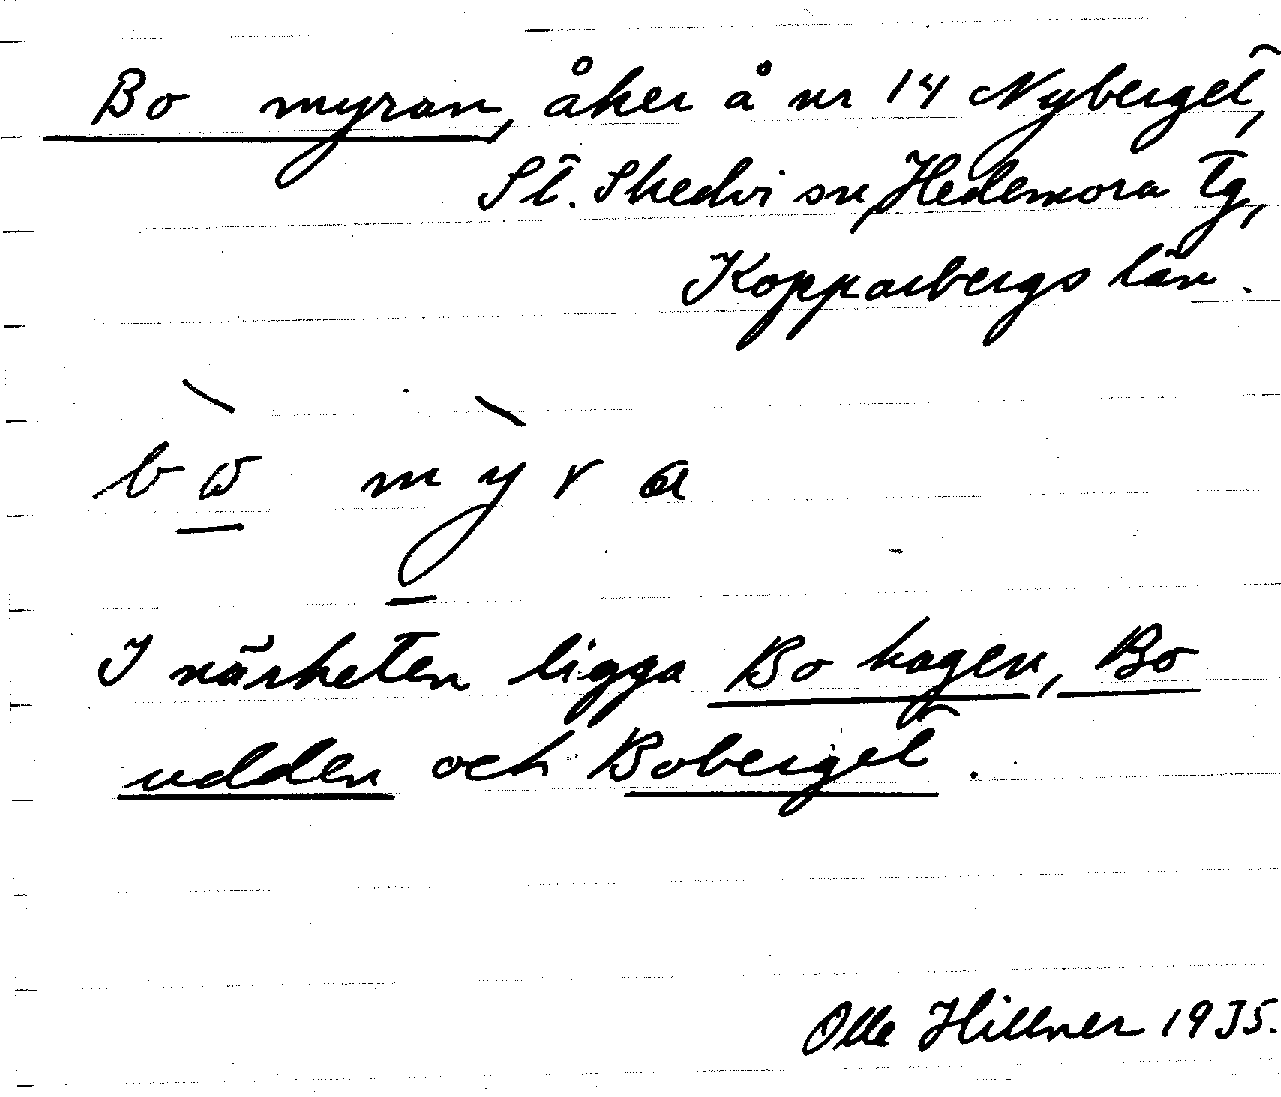 Bo myran, åker å nr 14 Nyberget,
St. Skedvi sn, Hedemora tg,
Kopparbergs län.
bò̱ mỳ̱ra
I närheten ligga Bo hagen, Bo
udden och Boberget.
Olle Hillner 1935.